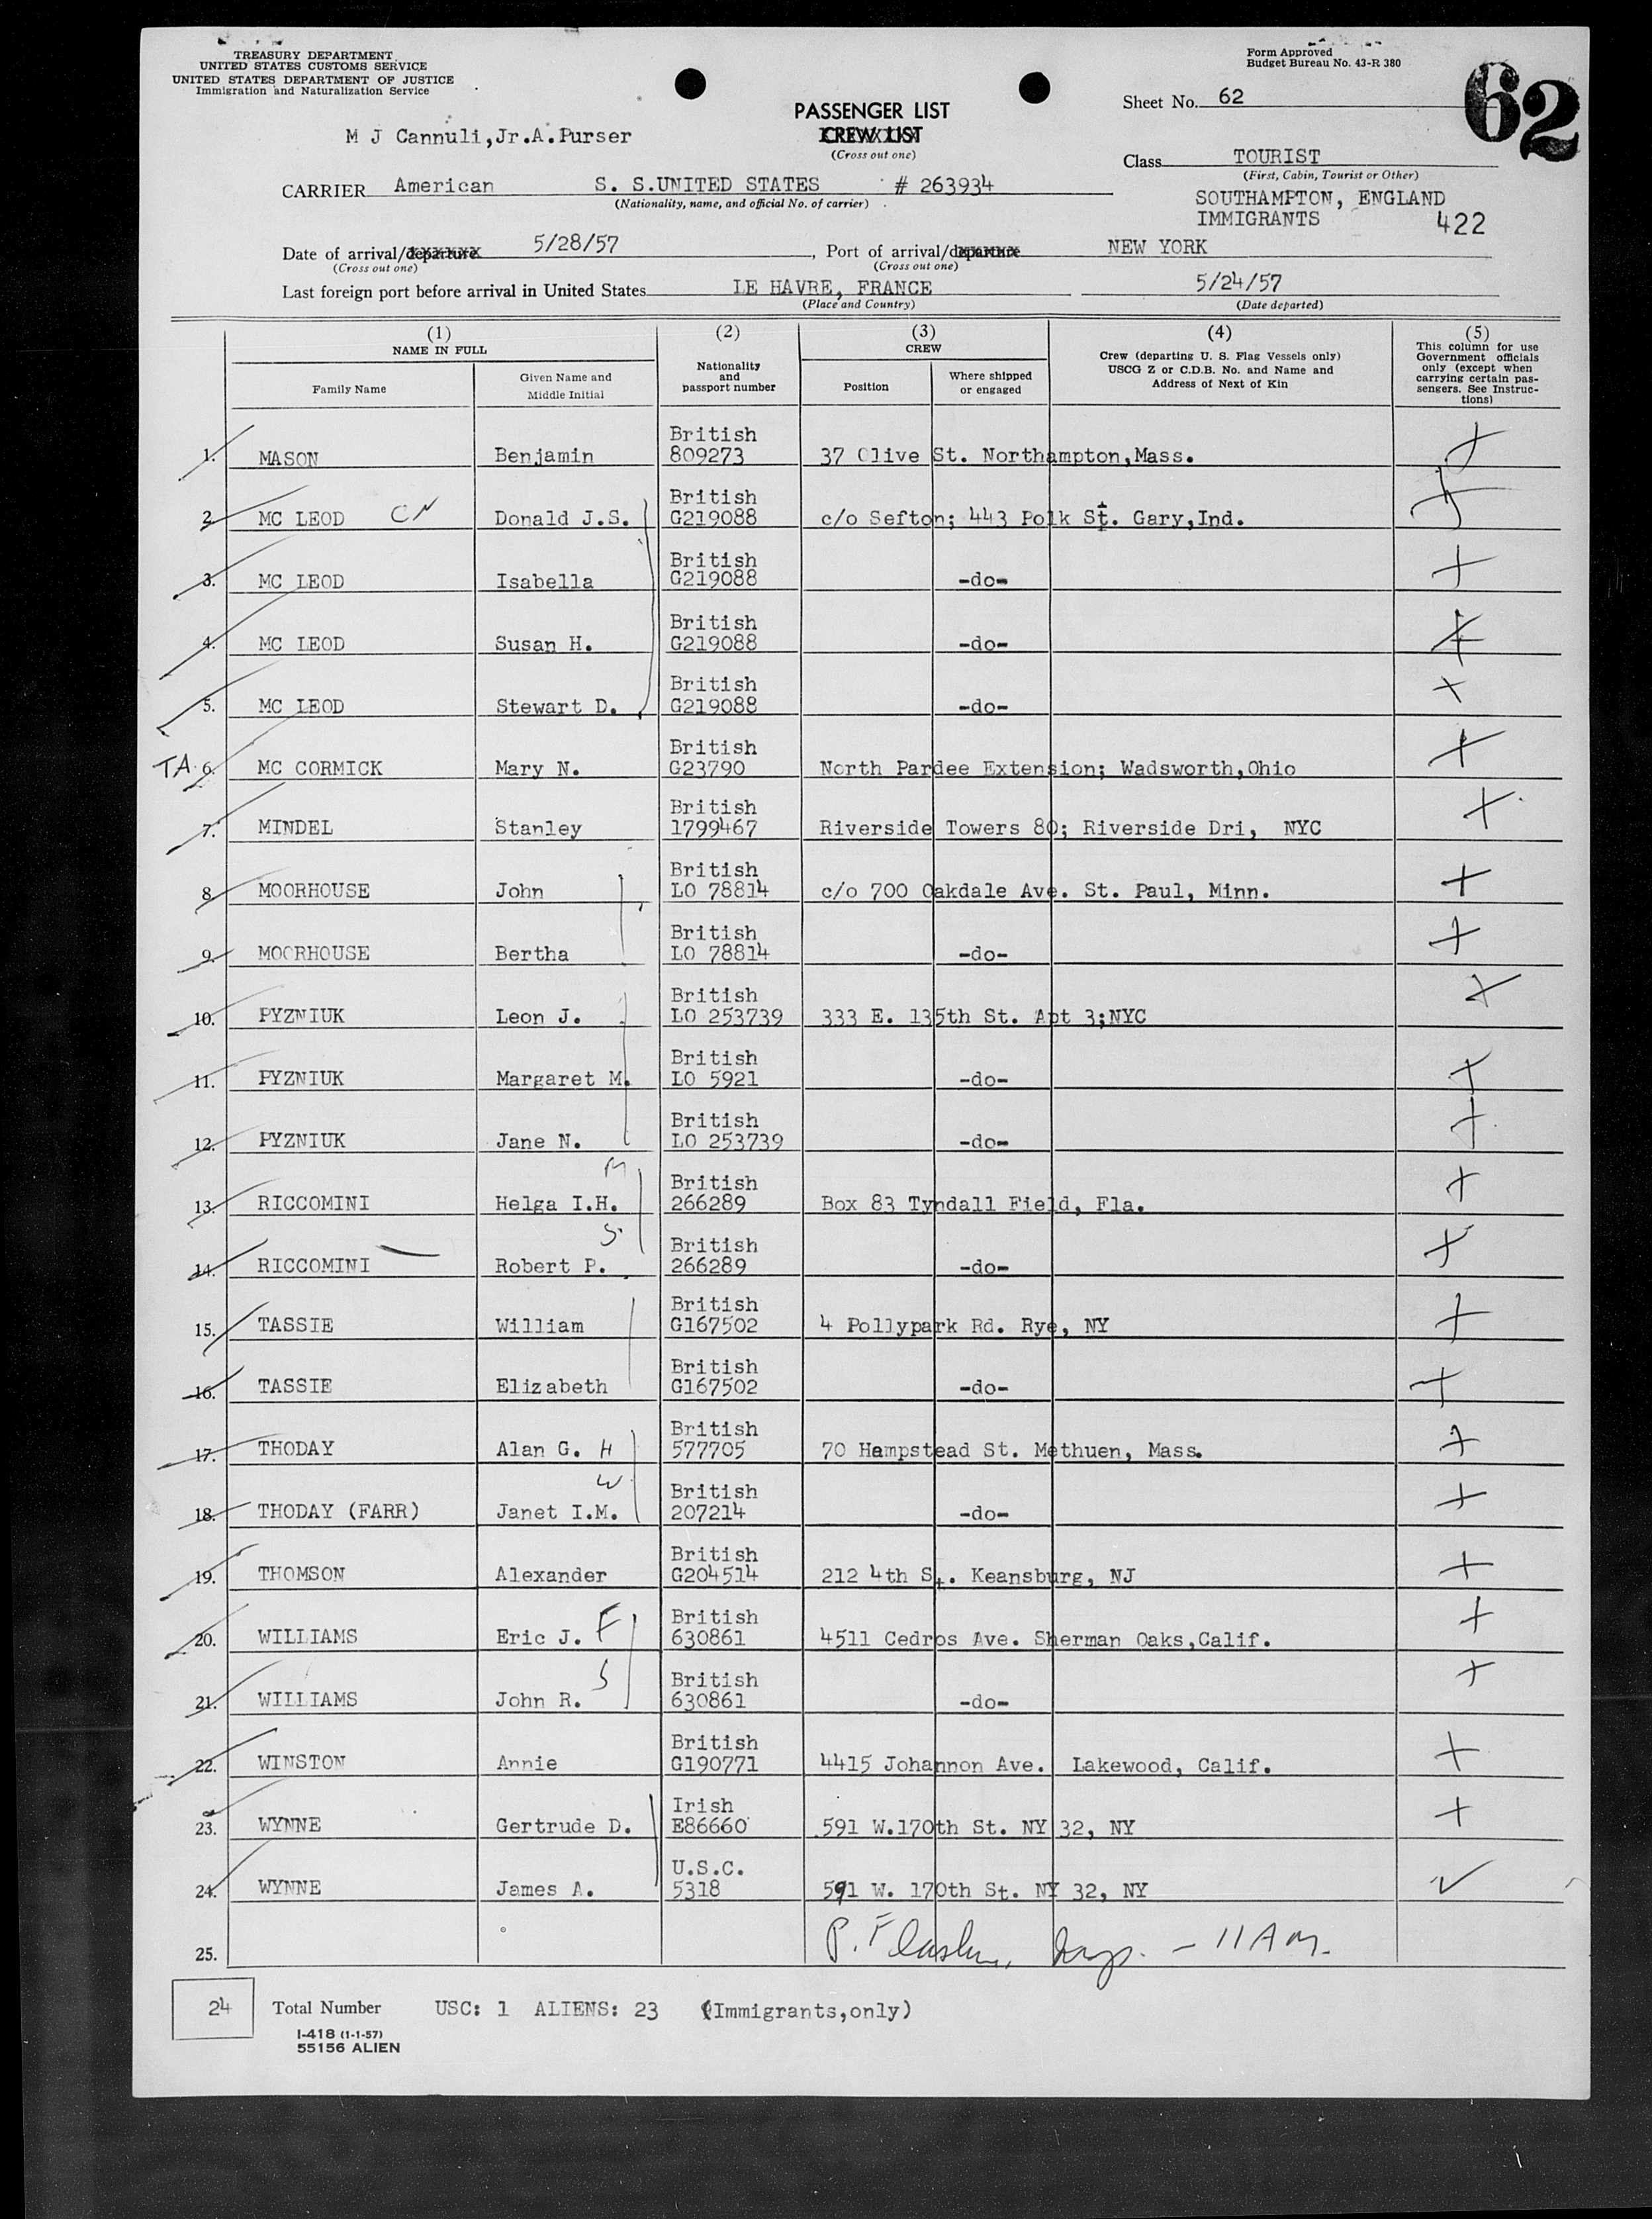 TREASURY DEPARTMENT
UNITED STATES CUSTOMS SERVICE
UNITED STATES DEPARTMENT OF JUSTICE
Immigration and Naturalization Service
Form Approved
Budget Bureau No. 43-R 380
Sheet No. 62
62
M J Cannuli,Jr.A.Purser
PASSENGER LIST
CREW LIST
(Cross out one)
Class TOURIST
(First, Cabin, Tourist or Other)
CARRIER American S. S.UNITED STATES # 263934
(Nationality, name, and official No. of carrier)
SOUTHAMPTON, ENGLAND
IMMIGRANTS 422
Date of arrival/departure 5/28/57, Port of arrival/departure NEW YORK
(Cross out one) (Cross out one)
Last foreign port before arrival in United States LE HAVRE, FRANCE 5/24/57
(Place and Country) (Date departed)
(1) NAME IN FULL
Family Name
Given Name and Middle Initial
(2) Nationality and passport number
(3) CREW
Position
Where shipped or engaged
(4) Crew (departing U. S. Flag Vessels only) USCG Z or C.D.B. No. and Name and Address of Next of Kin
(5) This column for use Government officials only (except when carrying certain passengers. See Instructions)
1. MASON Benjamin British 809273 37 Olive St. Northampton,Mass.
2. MC LEOD CN Donald J.S. British G219088 c/o Sefton; 443 Polk St. Gary,Ind.
3. MC LEOD Isabella British G219088 -do-
4. MC LEOD Susan H. British G219088 -do-
5. MC LEOD Stewart D. British G219088 -do-
TA 6. MC CORMICK Mary N. British G23790 North Pardee Extension; Wadsworth,Ohio
7. MINDEL Stanley British 1799467 Riverside Towers 80; Riverside Dri, NYC
8. MOORHOUSE John British LO 78814 c/o 700 Oakdale Ave. St. Paul, Minn.
9. MOORHOUSE Bertha British LO 78814 -do-
10. PYZNIUK Leon J. British LO 253739 333 E. 135th St. Apt 3;NYC
11. PYZNIUK Margaret M. British LO 5921 -do-
12. PYZNIUK Jane N. British LO 253739 -do-
13. RICCOMINI Helga I.H. M British 266289 Box 83 Tyndall Field, Fla.
14. RICCOMINI Robert P. S British 266289 -do-
15. TASSIE William British G167502 4 Pollypark Rd. Rye, NY
16. TASSIE Elizabeth British G167502 -do-
17. THODAY Alan G. H British 577705 70 Hampstead St. Methuen, Mass.
18. THODAY (FARR) Janet I.M. W British 207214 -do-
19. THOMSON Alexander British G204514 212 4th St. Keansburg, NJ
20. WILLIAMS Eric J. F British 630861 4511 Cedros Ave. Sherman Oaks,Calif.
21. WILLIAMS John R. S British 630861 -do-
22. WINSTON Annie British G190771 4415 Johannon Ave. Lakewood, Calif.
23. WYNNE Gertrude D. Irish E86660 591 W.170th St. NY 32, NY
24. WYNNE James A. U.S.C. 5318 591 W. 170th St. NY 32, NY
25. P. - 11 AM.
24 Total Number USC: 1 ALIENS: 23 (Immigrants,only)
I-418 (1-1-57)
55156 ALIEN